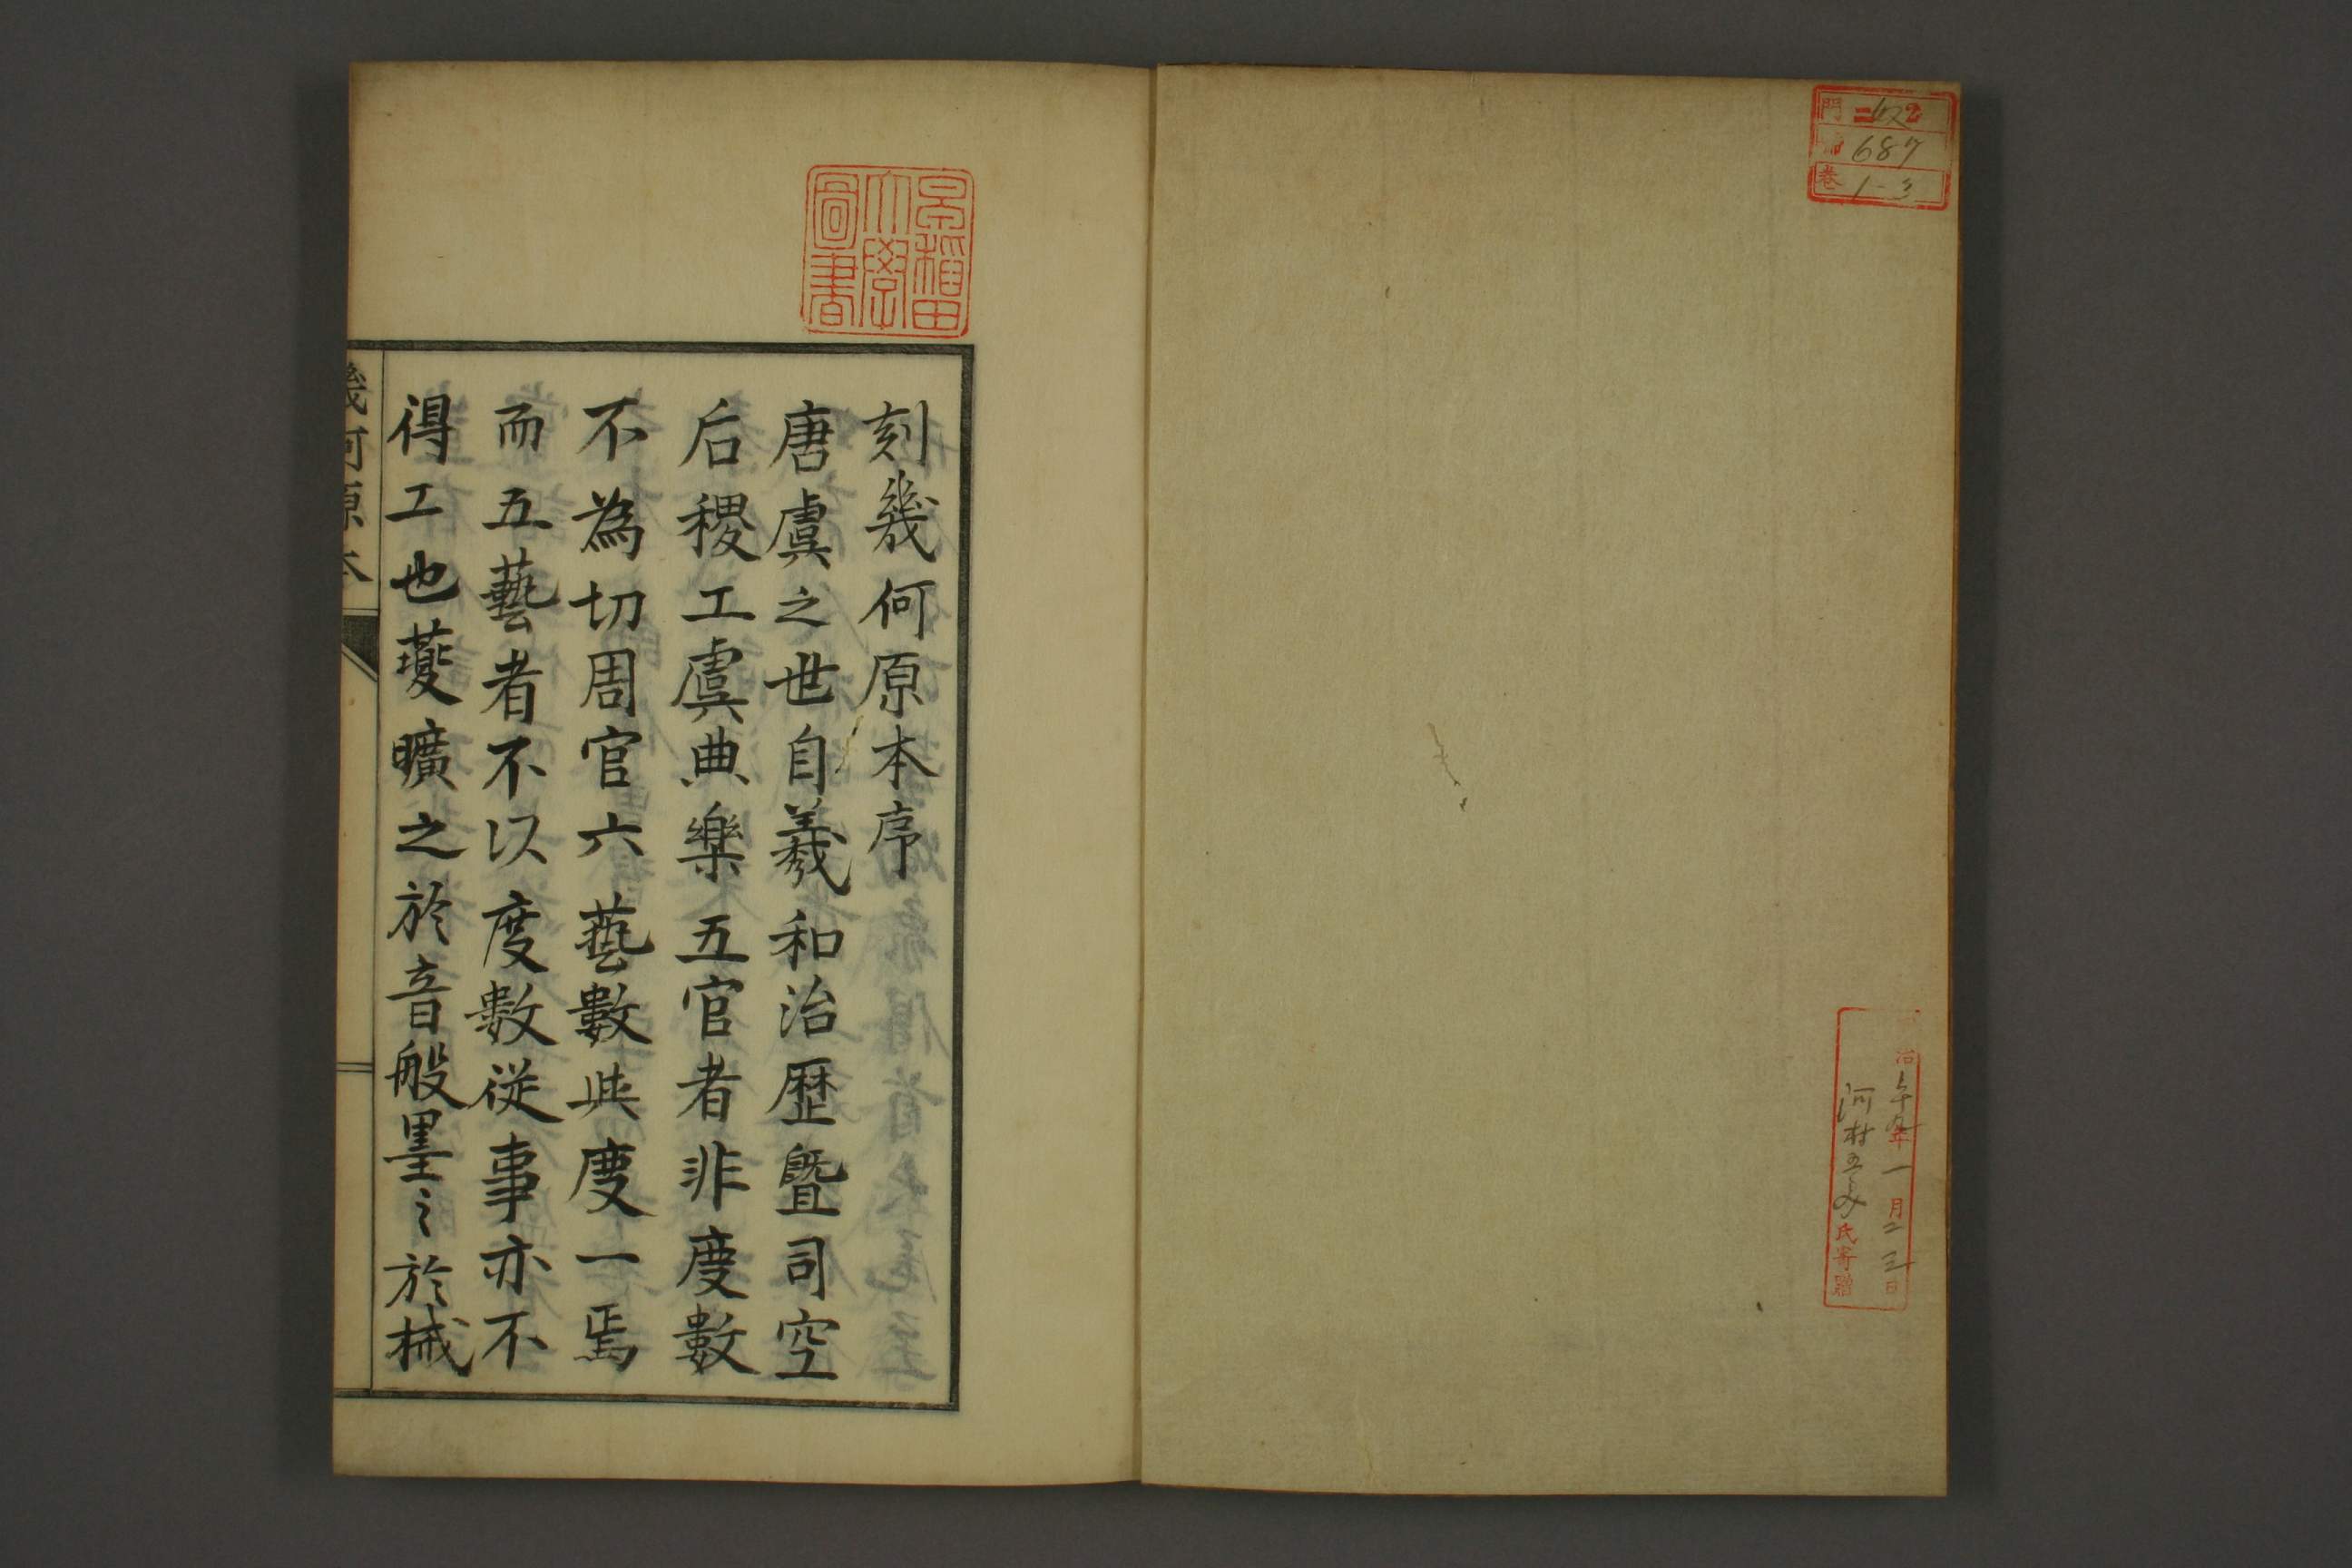 門 二 402
687
巻 1-3
治 年 一月二三日
河村 氏寄贈
早稲田
大學
圖書
刻幾何原本序
唐虞之世自羲和治歷暨司空
后稷工虞典樂五官者非度數
不為切周官六藝數與度一焉
而五藝者不以度數從事亦不
得工也蘷曠之於音般墨之於械
幾何原本